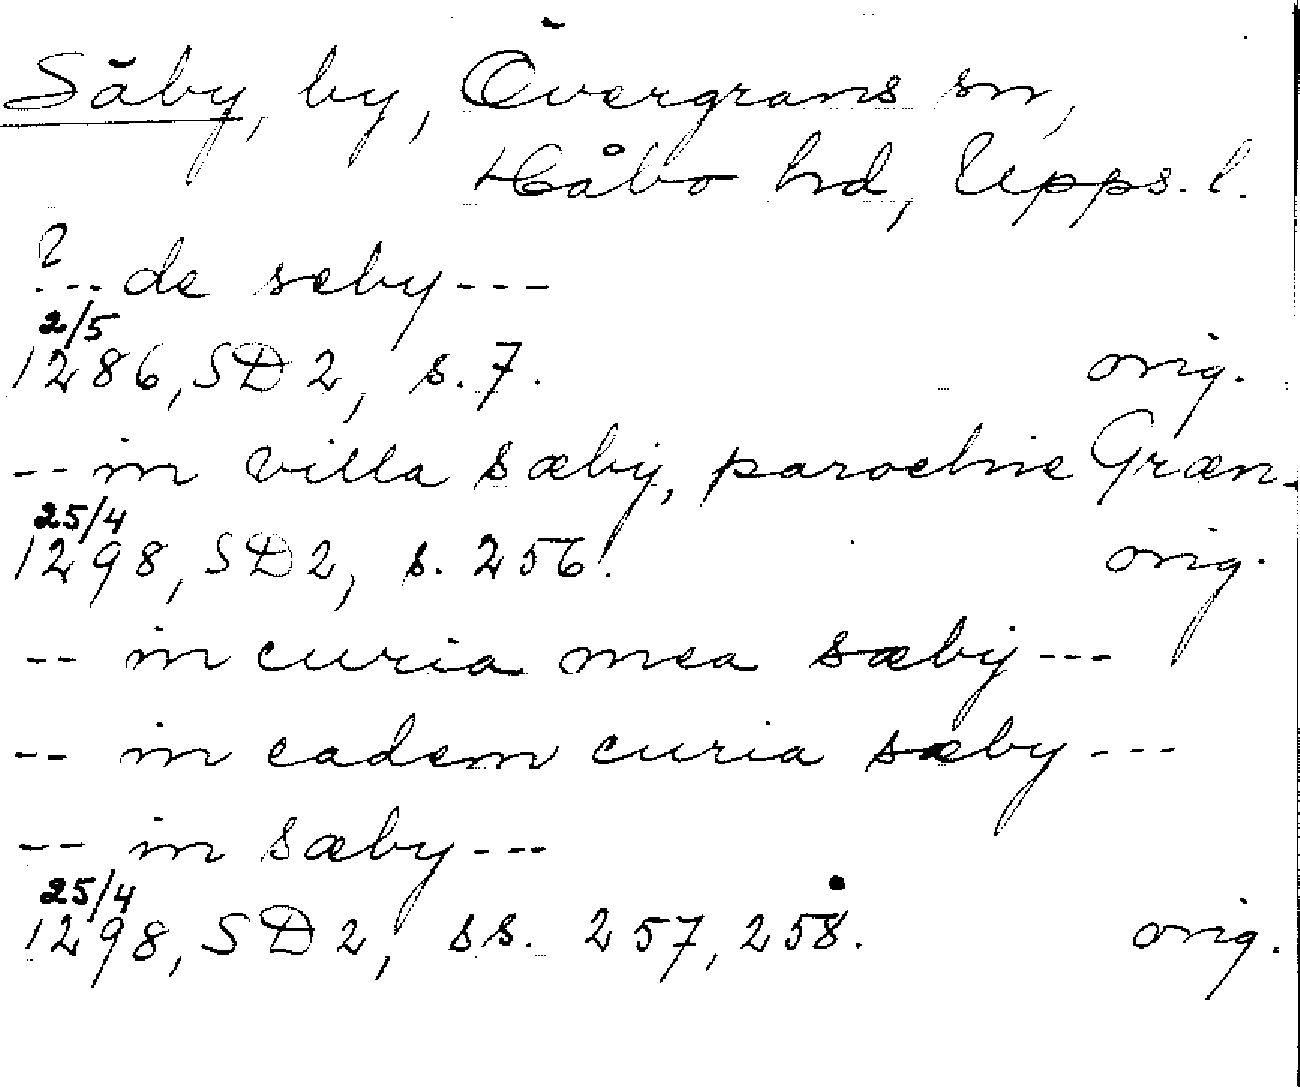 Säby, by, Övergrans sn,
Håbo hd, Upps. l.
?-- de seby ---
2/5
1286, SD 2, s. 7. orig.
-- in villa sæby, paroehie Græn-
25/4
1298, SD 2, s. 256. orig.
-- in curia mea sæby ---
-- in eadem curia sæby ---
-- in sæby ---
25/4
1298, SD 2, ss. 257, 258. orig.